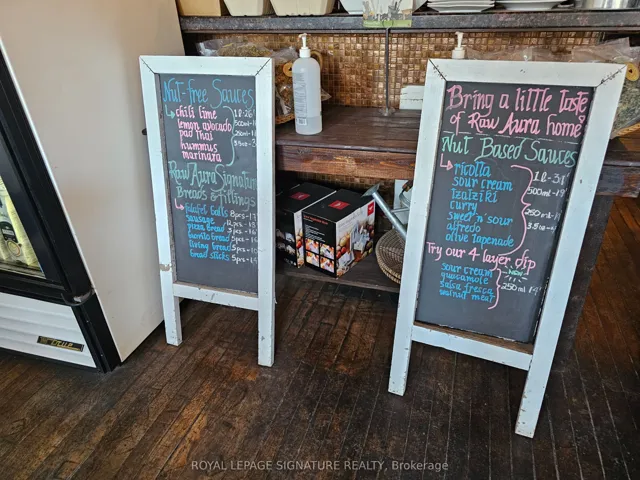 Nut-free Sauces
chili lime
lemon avocado
pad thai
hummus
marinara
1L-26
500ml-
250ml-
Raw Aura Signature
Breads & Fillings
falafel balls 8pcs-17
sausage
pizza bread
burrito bread
living bread
bread sticks
Bring a little taste
of Raw Aura home
Nut Based Sauces
ricotta
sour cream
tzatziki
curry
sweet n' sour
alfredo
olive tapenade
1L-31
500ml-19
250ml-11
Try our 4 layer dip
sour cream
guacamole
salsa fresca
walnut meat
NEW
250ml-9
TRUE
ROYAL LEPAGE SIGNATURE REALTY, Brokerage